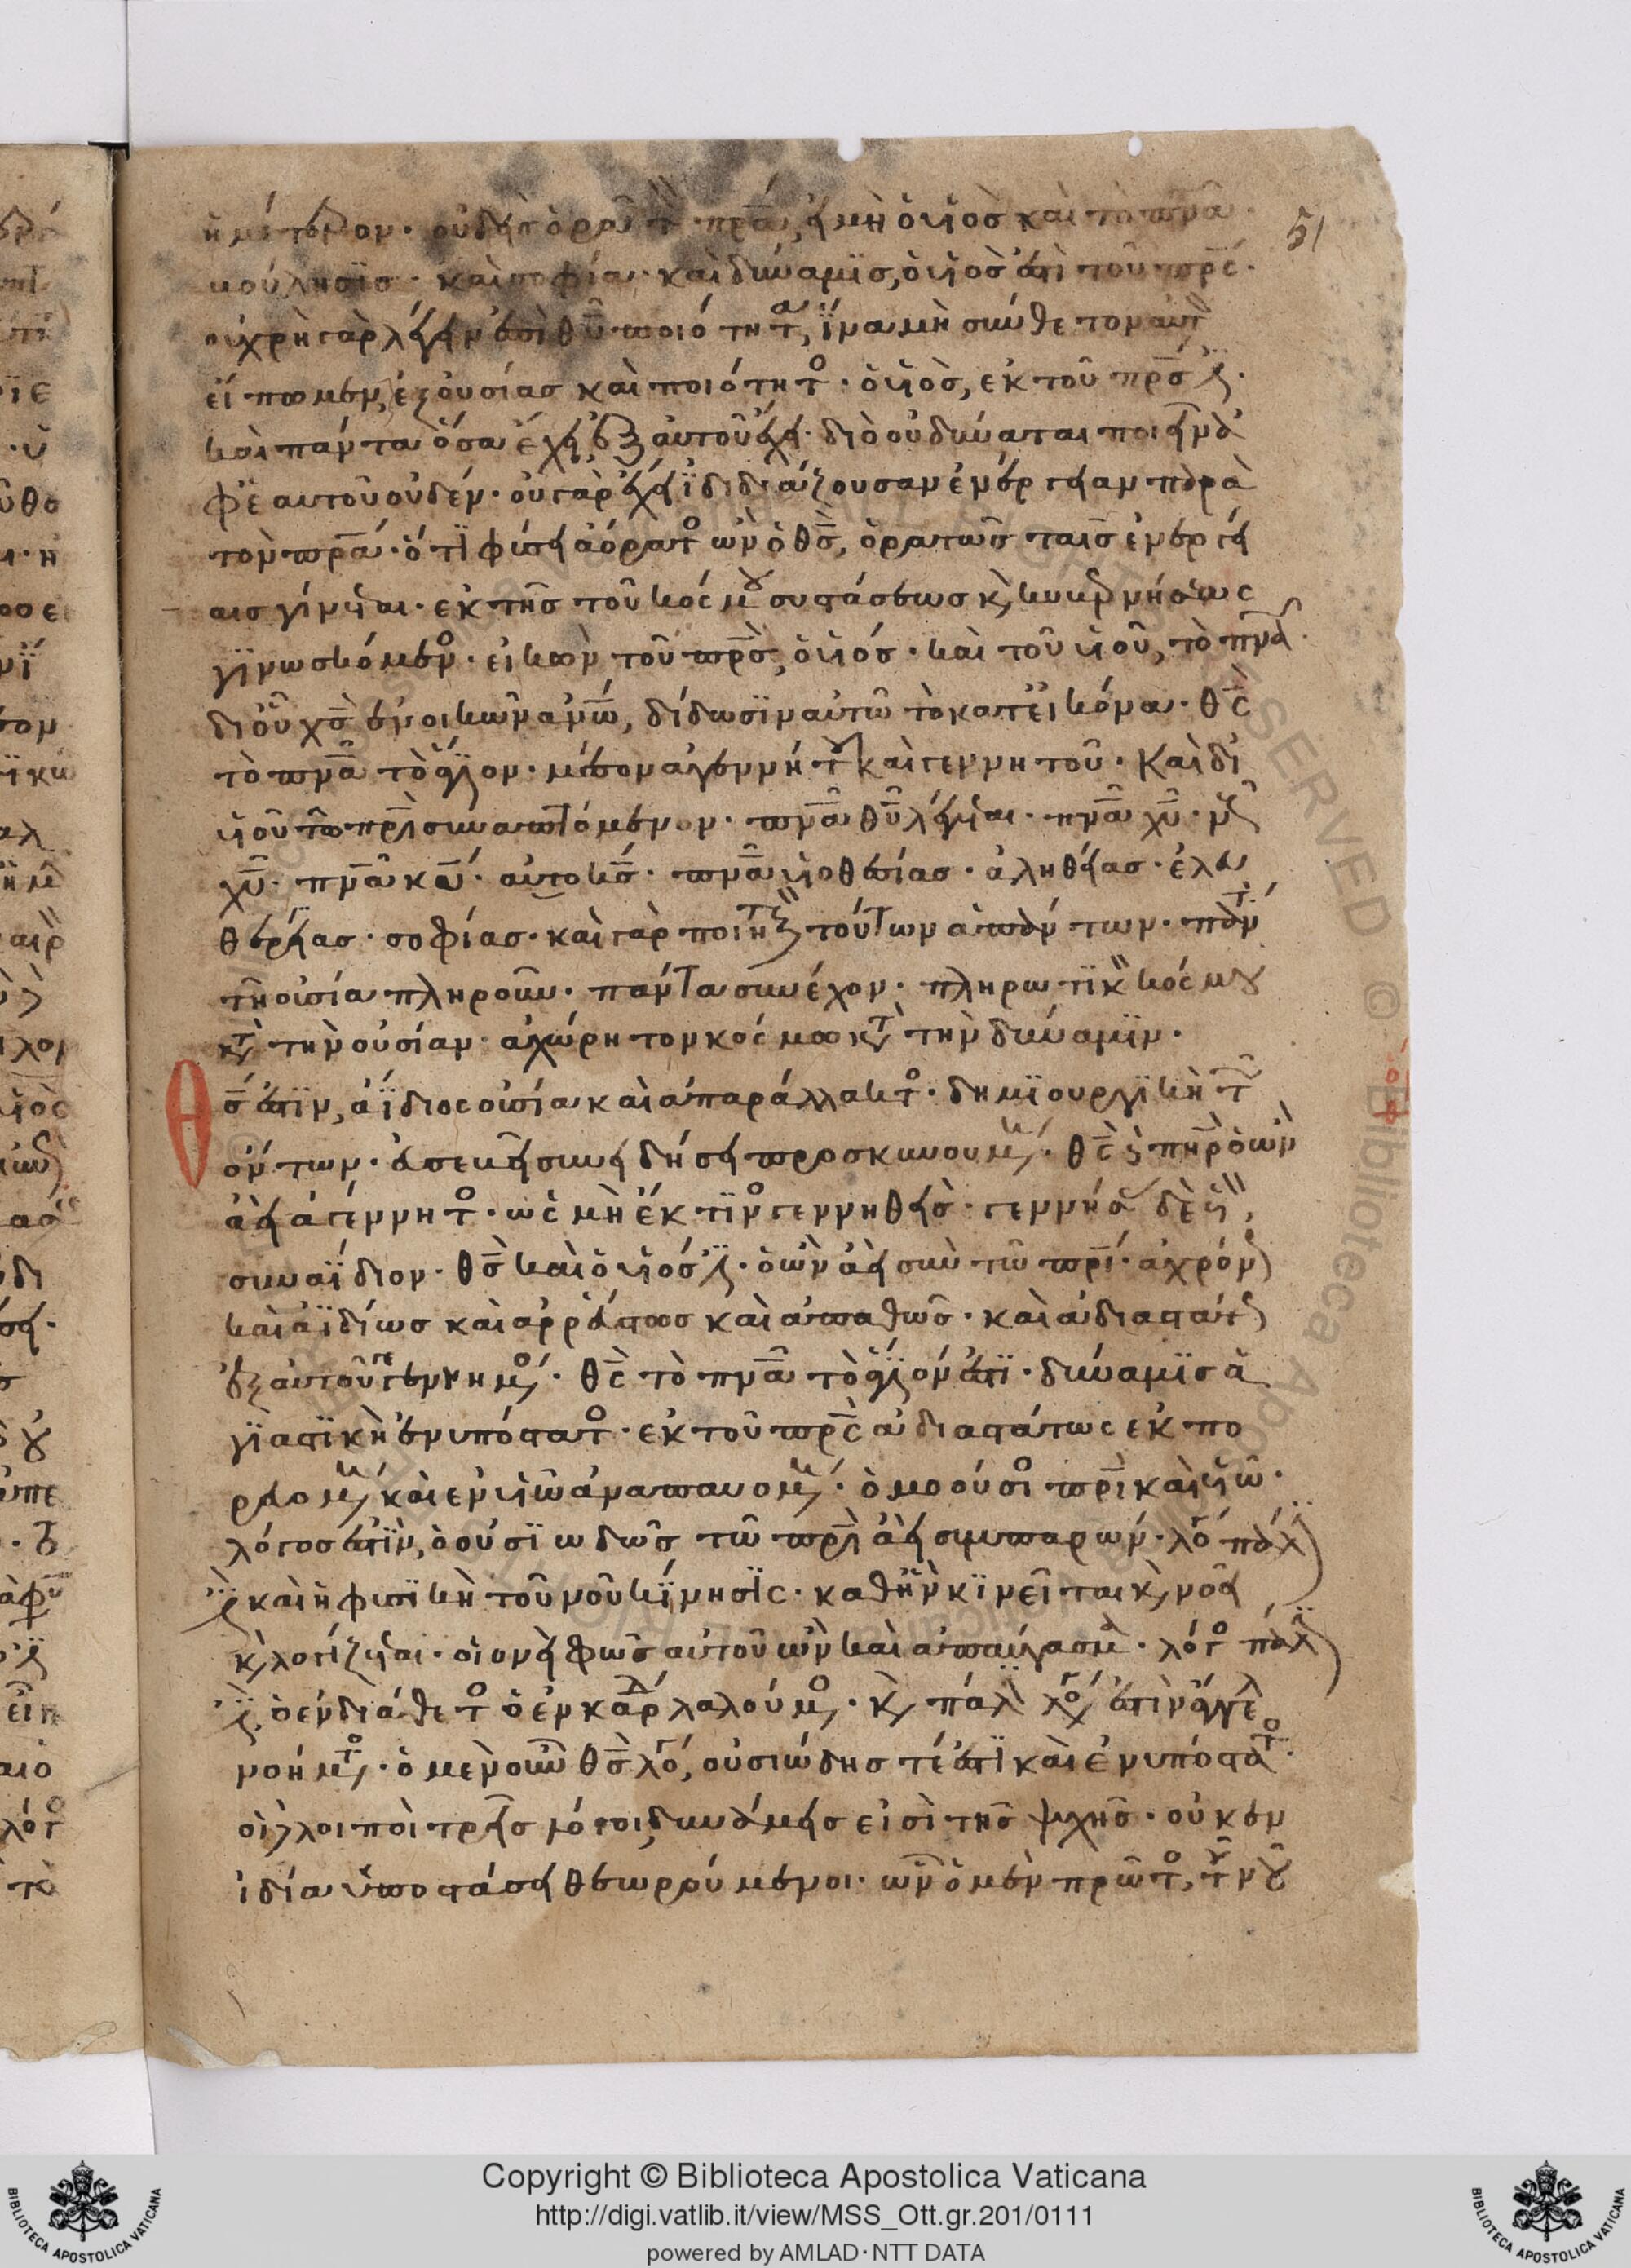 ἢ μέτριον· οὐδεὶς ὁρᾶ τὸν πρα, εἰ μὴ ὁ υἱὸς καὶ τὸ πνα·
βούλησις· καὶ σοφία· καὶ δύναμις, ὁ υἱὸς ἐστὶ τοῦ πρς·
οὐ χρὴ γὰρ λέγειν ἐπὶ θυ ποιότητα, ἵνα μὴ σύνθετον αὐτὸν
εἴπωμεν, ἐξ οὐσίας καὶ ποιότητος· ὁ υἱὸς, ἐκ τοῦ πρς ἐστι·
καὶ πάντα ὅσα ἔχει ἐξ αὐτοῦ ἔχει· διὸ οὐ δύναται ποιεῖν ἀ
φ' ἑαυτοῦ οὐδέν· οὐ γὰρ ἔχει ἰδιάζουσαν ἐνέργειαν παρὰ
τὸν πρα· ὅτι φύσει ἀόρατος ὢν ὁ θς, ὁρατὸς ταῖς ἐνεργεί
αις γίνεται· ἐκ τῆς τοῦ κόσμου συστάσεως καὶ κυβερνήσεως
γινωσκόμενος· εἰκὼν τοῦ πρς, ὁ υἱός· καὶ τοῦ υἱοῦ, τὸ πνα·
δι' οὗ χς ἐνοικῶν ανω, δίδωσιν αὐτῶ τὸ κατ' εἰκόνα· θς
τὸ πνα τὸ ἅγιον· μέσον ἀγεννήτου καὶ γεννητοῦ· καὶ δι'
υἱοῦ τῶ πρι συναπτόμενον· πνα θυ λέγεται· πνα χυ· νοῦς
χυ· πνα κυ· αὐτοκς· πνα υἱοθεσίας· ἀληθείας· ἐλευ
θερίας· σοφίας· καὶ γὰρ ποιητικὸν τούτων ἁπάντων· πάντα
τῆ οὐσία πληροῦν· πάντα συνέχον· πληρωτικὸν κόσμου
κατὰ τὴν οὐσίαν· ἀχώρητον κόσμω κατὰ τὴν δύναμιν·
Θς ἐστιν, ἀΐδιος οὐσία καὶ ἀπαράλλακτος· δημιουργικὴ τῶν
ὄντων· εὐσεβεῖ συνειδήσει προσκυνουμένη· θς ὁ πηρ ὁ ὢν
ἀεὶ ἀγέννητος· ὡς μὴ ἔκ τινος γεννηθείς· γεννήσας δὲ υἱὸν
συναΐδιον· θς καὶ ὁ υἱός ἐστι· ὁ ὢν ἀεὶ σὺν τῶ πρι· ἀχρόνως
καὶ ἀϊδίως καὶ ἀρρεύστως καὶ ἀπαθῶς· καὶ ἀδιαστάτως
ἐξ αὐτοῦ γεγεννημένος· θς τὸ πνα τὸ ἅγιον ἐστι· δύναμις ἁ
γιαστικὴ ἐνυπόστατος· ἐκ τοῦ πρς ἀδιαστάτως ἐκπο
ρευομένη καὶ ἐν υἱῶ ἀναπαυομένη· ὁμοούσιος πρι καὶ υἱῶ·
λόγος ἐστὶν, ὁ οὐσιωδῶς τῶ πρι ἀεὶ συμπαρών· λόγος πάλιν
ἐστι καὶ ἡ φυσικὴ τοῦ νοῦ κίνησις· καθ' ἣν κινεῖται καὶ νοεῖ
καὶ λογίζεται· οἱονεὶ φῶς αὐτοῦ ὢν καὶ ἀπαύγασμα· λόγος πάλιν
ἐστι, ὁ ἐνδιάθετος ὁ ἐν καρδία λαλούμενος· καὶ πάλιν λόγος ἐστὶν ἄγγελος
νοήματος· ὁ μὲν οὖν θς λόγος, οὐσιώδης τέ ἐστι καὶ ἐνυπόστατος·
οἱ δὲ λοιποὶ τρεῖς λόγοι, δυνάμεις εἰσὶ τῆς ψυχῆς· οὐκ ἐν
ἰδία ὑποστάσει θεωρούμενοι· ὧν ὁ μὲν πρῶτος, τοῦ νοῦ
Copyright © Biblioteca Apostolica Vaticana
http://digi.vatlib.it/view/MSS_Ott.gr.201/0111
powered by AMLAD·NTT DATA
BIBLIOTECA APOSTOLICA VATICANA
BIBLIOTECA APOSTOLICA VATICANA